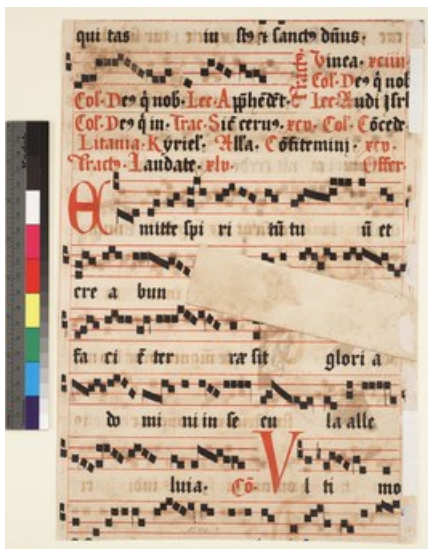 qui tas iu stꝰ ⁊ sanctꝰ dn̄us.
Tractꝰ Vinea. xciiii
Col. Deꝰ q̄ nob
Col. Deꝰ q̄ nob. Lec. Apph̄edēt. Lec. Audi isrl
Col. Deꝰ q̄ in. Trac. Sic̄ cerus. xcv. Col. Cōcede
Litania. Kyriel. Alla. Cōfitemini. xcv.
Tractꝰ. Laudate. xlv. Offer.
Emitte spi ri tū tu ū et
cre a bun
fa ci ē ter ræ sit glori a
do mi ni in se cu la alle
luia. Cō. Vl ti mo